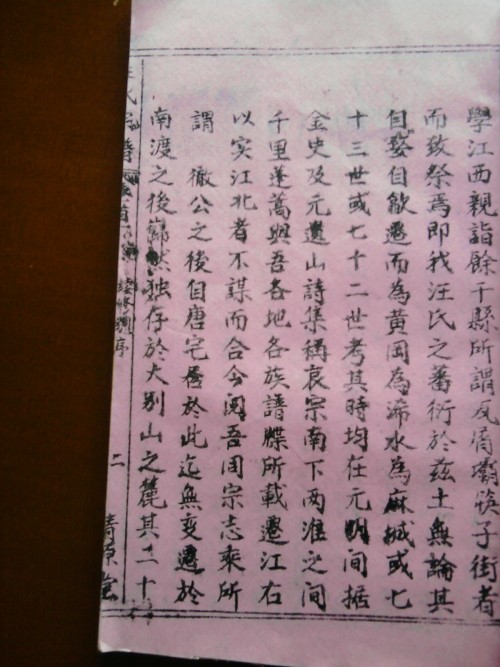 學江西親詣餘干縣所謂瓦屑壩筷子街者
而致祭焉即我汪氏之蕃衍於茲土無論其
自婺自歙遷而為黃岡為浠水為麻城或七
十三世或七十二世考其時均在元明間据
金史及元遺山詩集稱哀宗南下兩淮之間
千里蓬蒿與吾各地各族譜牒所載遷江右
以实江北者不謀而合今閱吾固宗志乘所
謂 徹公之後自唐宅居於此迄無变遷於
南渡之後巋然独存於大別山之麓其二十
氏宗譜 卷首 續修 序 二